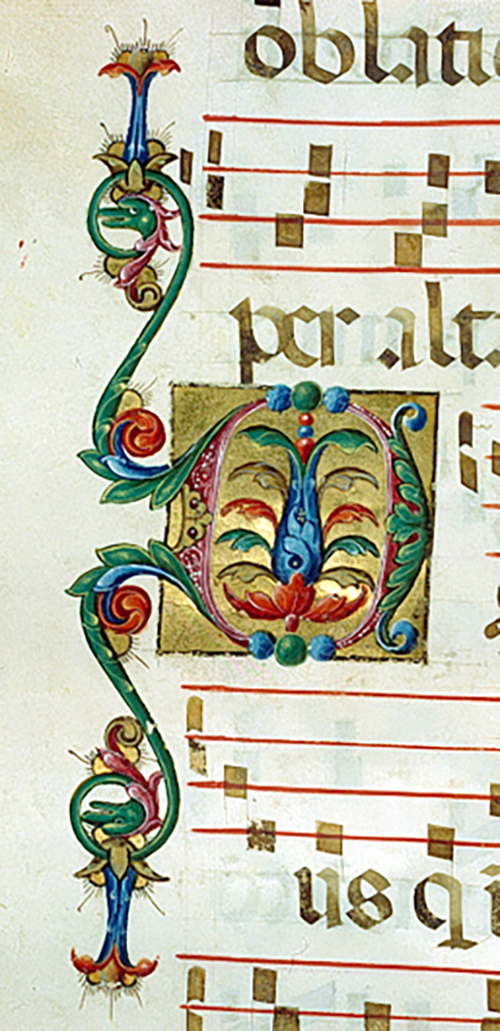 oblati
per alt
us q